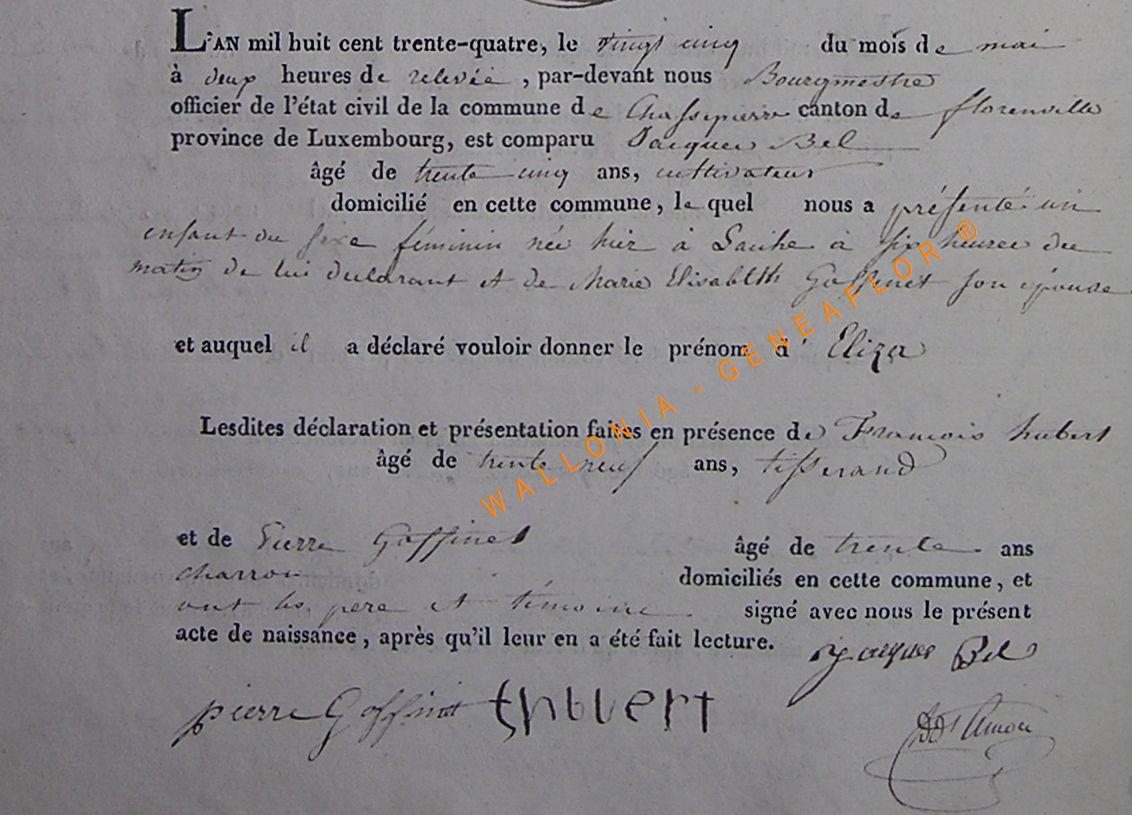 L'AN mil huit cent trente-quatre, le vingt cinq du mois de mai
à deux heures de relevée, par-devant nous Bourgmestre
officier de l'état civil de la commune de Chassepierre canton de florenville
province de Luxembourg, est comparu Jacques Bel
âgé de trente cinq ans, cultivateur
domicilié en cette commune, le quel nous a présenté un
enfant du sexe féminin née hier à Laiche à six heures du
matin de lui déclarant et de Marie Elisabeth Goffinet son épouse
et auquel il a déclaré vouloir donner le prénom d' Eliza
Lesdites déclaration et présentation faites en présence de François hubert
âgé de trente neuf ans, tisserand
et de Pierre Goffinet âgé de trente ans
charron domiciliés en cette commune, et
ont les père et témoins signé avec nous le présent
acte de naissance, après qu'il leur en a été fait lecture.
Jacques Bel
pierre Goffinet
WALLONIA - GENEAFLOR ®